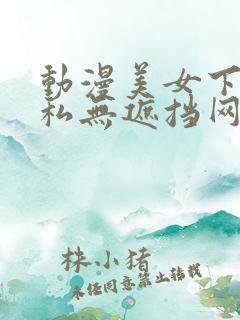 動漫美女下
私無遮挡网
株小猪
未经同意禁止转载